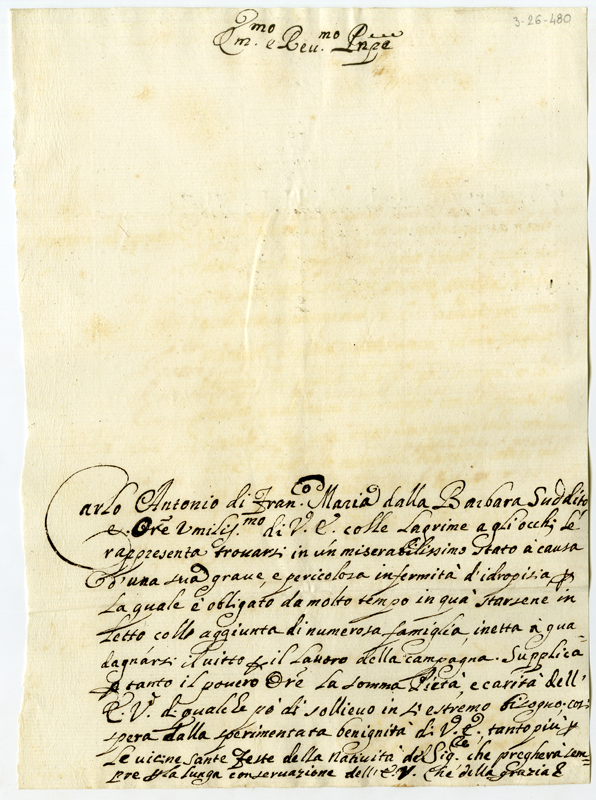 3-26-480
Em.mo e Reu.mo Pnpe
Carlo Antonio di Fran.co Maria dalla Barbara Suddito
e Ore Vmilis.mo di V. E. colle lagrime agli occhi le
rappresenta trouarsi in un miserabilissimo stato à causa
d'una sua graue, e pericolosa infermità d'idropisia, p
la quale è obligato da molto tempo in quà starsene in
letto coll' aggiunta di numerosa famiglia inetta à gua-
dagnarsi il uitto p il lauoro della campagna. Supplica
p tanto il pouero Ore la somma Pietà, e carità dell'
E. V. di qualche pò di sollieuo in sì estremo bisogno, co
spera dalla sperimentata benignità di V. E. tanto più p
le uicine sante feste della Natiuità del Sig.re che pregherà sem-
pre p la lunga conseruazione dell' E. V. Che della grazia &